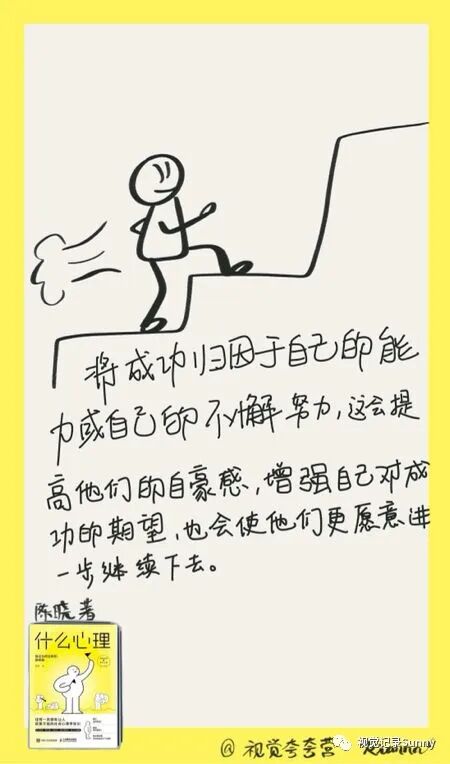 将成功归因于自己的能
力或自己的不懈努力，这会提
高他们的自豪感，增强自己对成
功的期望，也会使他们更愿意进
一步继续下去。
陈晓著
什么心理
@视觉夸夸营
视觉记录Sunny